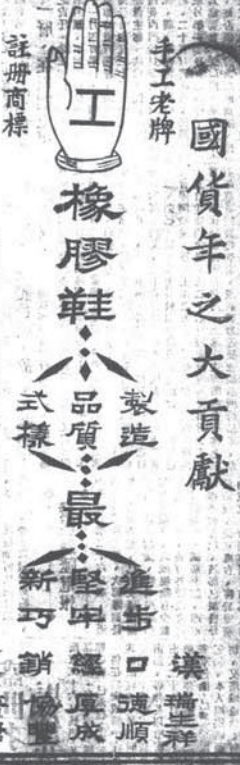 國貨年之大貢獻
手工老牌
工
註册商標
橡膠鞋
製造
品質
式樣
最
進步
堅牢
新巧
漢口經銷
瑞生祥
德順
厚成
協豐